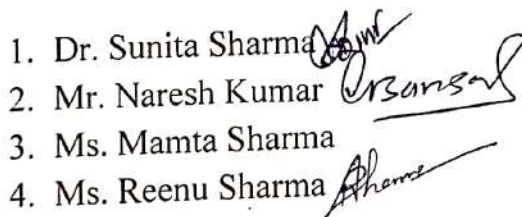 1. Dr. Sunita Sharma
2. Mr. Naresh Kumar
3. Ms. Mamta Sharma
4. Ms. Reenu Sharma